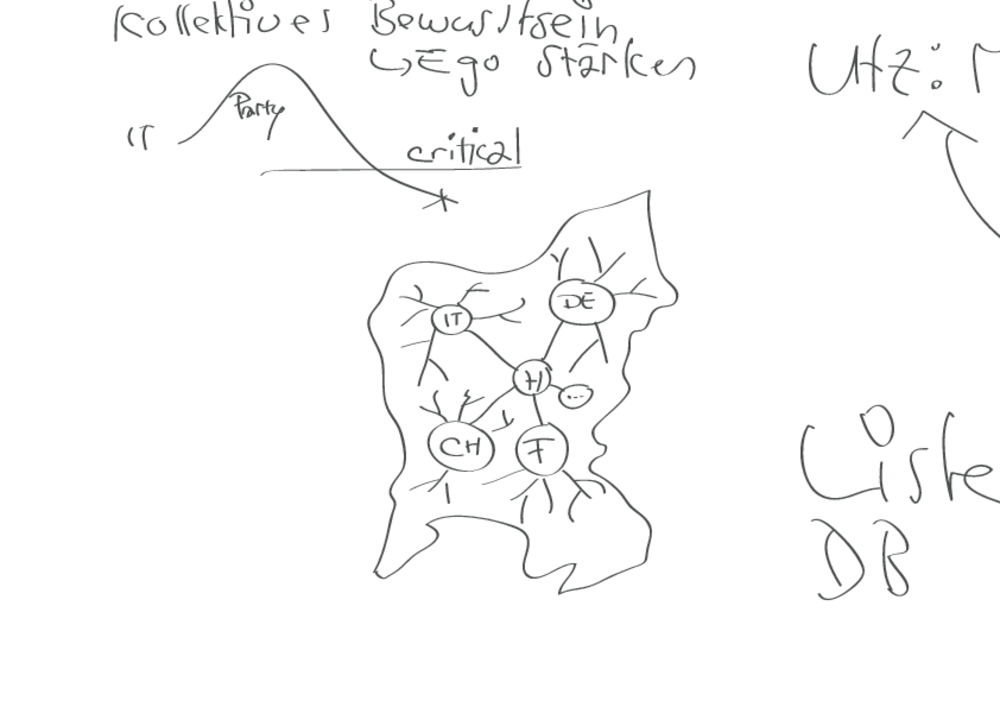 Kollektives Bewusstsein
↳ Ego stärken
Party
IT
critical
Utz:
DE
IT
H
...
CH
F
Liste
DB